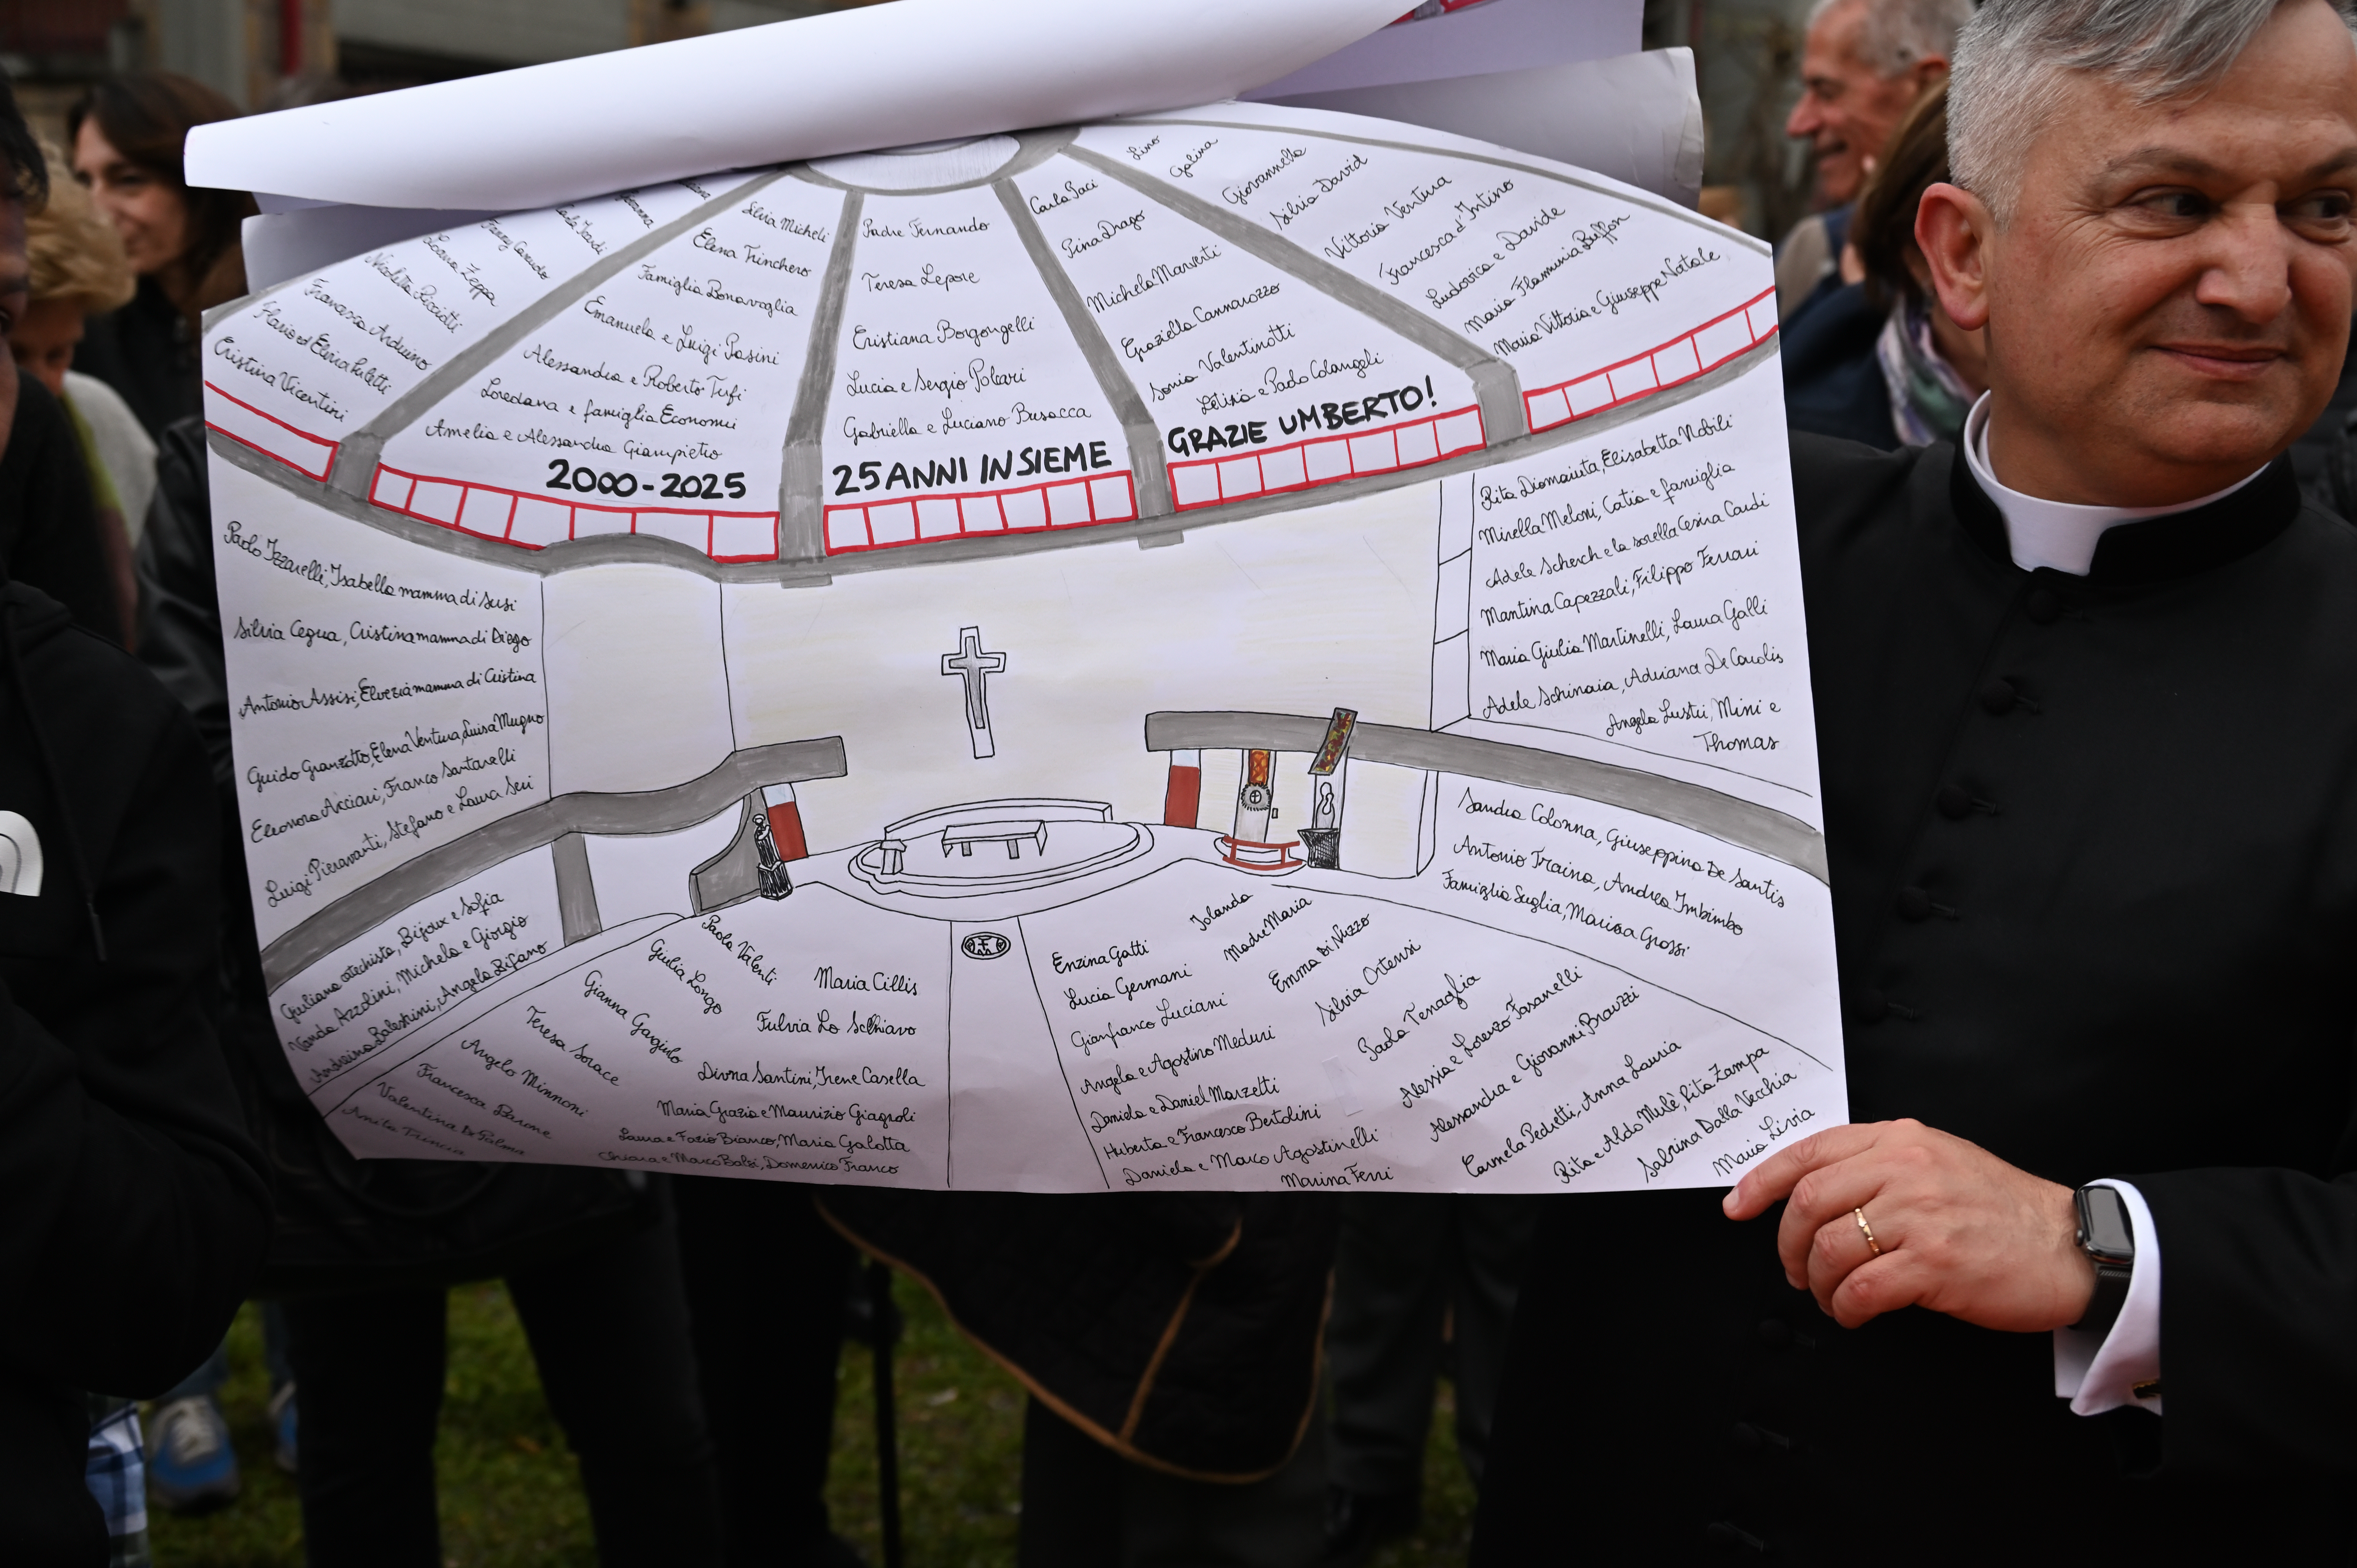 Silvia Micheli
Elena Trinchero
Famiglia Bonavoglia
Emanuela e Luigi Pasini
Alessandra e Roberto Tufi
Loredana e famiglia Economi
Amelia e Alessandra Giampietro
2000-2025
Laura Zeppa
Nicoletta Ricciotti
Francesca Arduino
Flavio ed Elvira Puletti
Cristina Vicentini
Padre Fernando
Teresa Lepore
Cristiana Borgongelli
Lucia e Sergio Poleari
Gabriella e Luciano Busacca
25 ANNI INSIEME
Carla Paci
Pina Drago
Michela Marventi
Graziella Cannarozzo
Sonia Valentinotti
Letizia e Paolo Colangeli
GRAZIE UMBERTO!
Lino
Galina
Giovannella
Silvia David
Vittoria Ventura
Francesca d'Intino
Ludovica e Davide
Maria Flaminia Buffon
Maria Vittoria e Giuseppe Natale
Paolo Izzarelli, Isabella mamma di Susi
Silvia Cegua, Cristina mamma di Diego
Antonio Assisi, Elvezia mamma di Cristina
Guido Granzotto, Elena Ventura, Luisa Mugno
Eleonora Acciari, Franco Santarelli
Luigi Pieravanti, Stefano e Laura Seri
Rita Diomaiuta, Elisabetta Nobili
Mirella Meloni, Catia e famiglia
Adele Scherch e la sorella Cesira Cardi
Mantina Capezzali, Filippo Ferrari
Maria Giulia Martinelli, Laura Galli
Adele Schinaia, Adriana De Carolis
Angela Lustri, Mimi e
Thomas
Sandra Colonna, Giuseppina De Santis
Antonio Traina, Andrea Imbimbo
Famiglia Suglia, Marisa Grossi
Giuliana catechista, Bijoux e Sofia
Vanda Azzolini, Michela e Giorgio
Andreina Balestrini, Angela Bifano
Paola Valenti
Giulia Longo
Gianna Gargiulo
Teresa Sorace
Angelo Minnoni
Francesca Barone
Valentina Di Palma
Anita Trincia
Maria Cillis
Fulvia Lo Schiavo
Divna Santini, Irene Casella
Maria Grazia e Maurizio Giagnoli
Laura e Fazio Bianco, Maria Galotta
Chiara e Marco Balsi, Domenico Franco
Enzina Gatti
Lucia Germani
Gianfranco Luciani
Angela e Agostino Meduri
Daniela e Daniel Marzetti
Huberta e Francesco Bertolini
Daniela e Marco Agostinelli
Marina Ferri
Iolanda
Madre Maria
Emma Di Nuzzo
Silvia Ortensi
Paola Tenaglia
Alessia e Lorenzo Fasanelli
Alessandra e Giovanni Brauzzi
Carmela Pedretti, Anna Lauria
Rita e Aldo Mulè, Rita Zampa
Sabrina Dalla Vecchia
Maria Livia